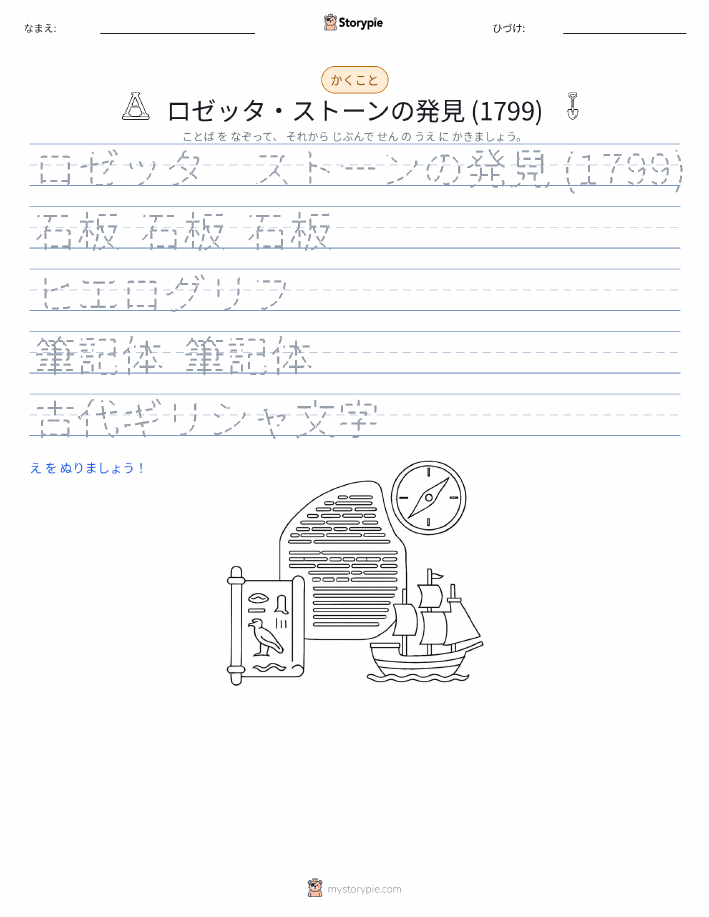 なまえ:
Storypie
ひづけ:
かくこと
ロゼッタ・ストーンの発見 (1799)
ことば を なぞって、 それから じぶんで せん の うえ に かきましょう。
ロゼッタ ストーンの発見 (1799)
石板 石板 石板
ヒエログリフ
筆記体 筆記体
古代ギリシャ文字
え を ぬりましょう！
mystorypie.com